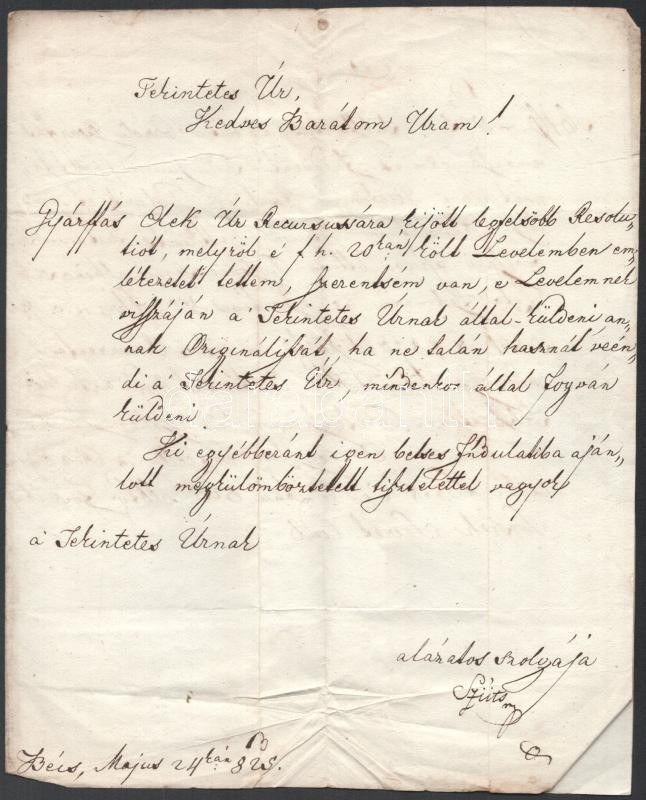 Tekintetes Úr,
Kedves Barátom Uram!
Gyárffás Elek Úr Recursussára kijött legfelsöbb Resolu„
tiót, melyröl é f. h. 20kán költ Levelemben em„
lékezetet tettem, szerentsém van, e Levelemnek
visszáján a' Tekintetes Úrnak által-küldeni an„
nak Originálissát, ha ne talán használ veén„
di á Tekintetes Úr, mindenkor által fogván
küldeni.
Ki egyébberánt igen betses Indulatiba aján„
lott megkülömböztetett tisztelettel vagyok
á Tekintetes Úrnak
alázatos szolgája
Szüts
Bécs, Május 24kán 825.